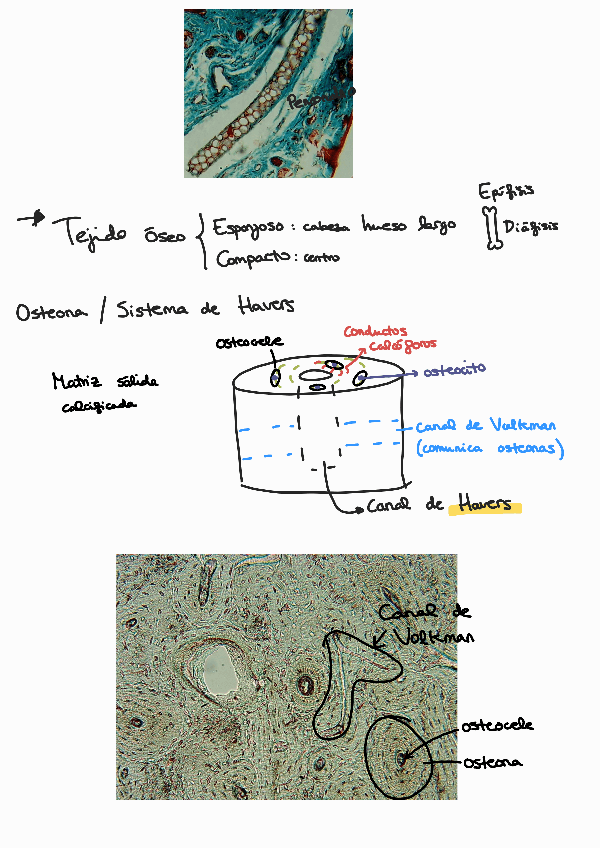 Tejido óseo
Esponjoso: cabeza hueso largo
Compacto: centro
Epífisis
Diáfisis
Osteona / Sistema de Havers
Matriz sólida
calcificada
osteocele
conductos
calcóforos
osteocito
canal de Volkman
(comunica osteonas)
Canal de Havers
Canal de
Volkman
osteocele
osteona